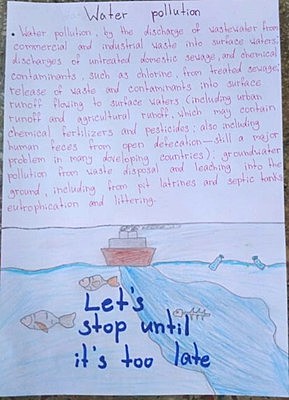 Water pollution
• Water pollution, by the discharge of wastewater from
commercial and industrial waste into surface waters;
discharges of untreated domestic sewage, and chemical
contaminants, such as chlorine, from treated sewage;
release of waste and contaminants into surface
runoff flowing to surface waters (including urban
runoff and agricultural runoff, which may contain
chemical fertilizers and pesticides; also including
human feces from open defecation—still a major
problem in many developing countries); groundwater
pollution from waste disposal and leaching into the
ground, including from pit latrines and septic tanks;
eutrophication and littering.
Let's
stop until
it's too late